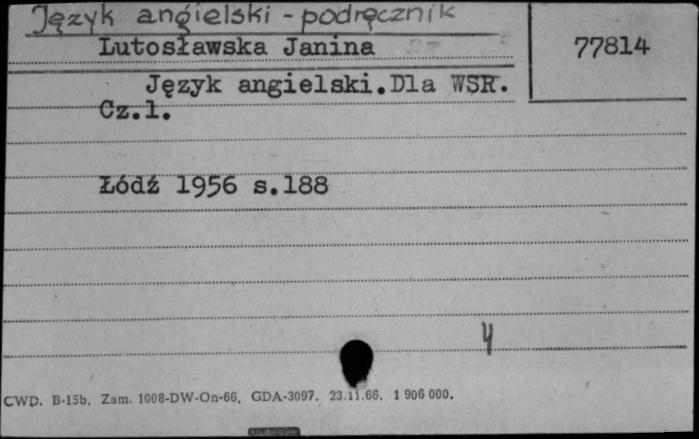 Język angielski - podręcznik
Lutosławska Janina
77814
Język angielski.Dla WSR.
Cz.1.
Łódź 1956 s.188
4
CWD. B-15b. Zam. 1008-DW-On-66. GDA-3097. 23.11.66. 1 906 000.